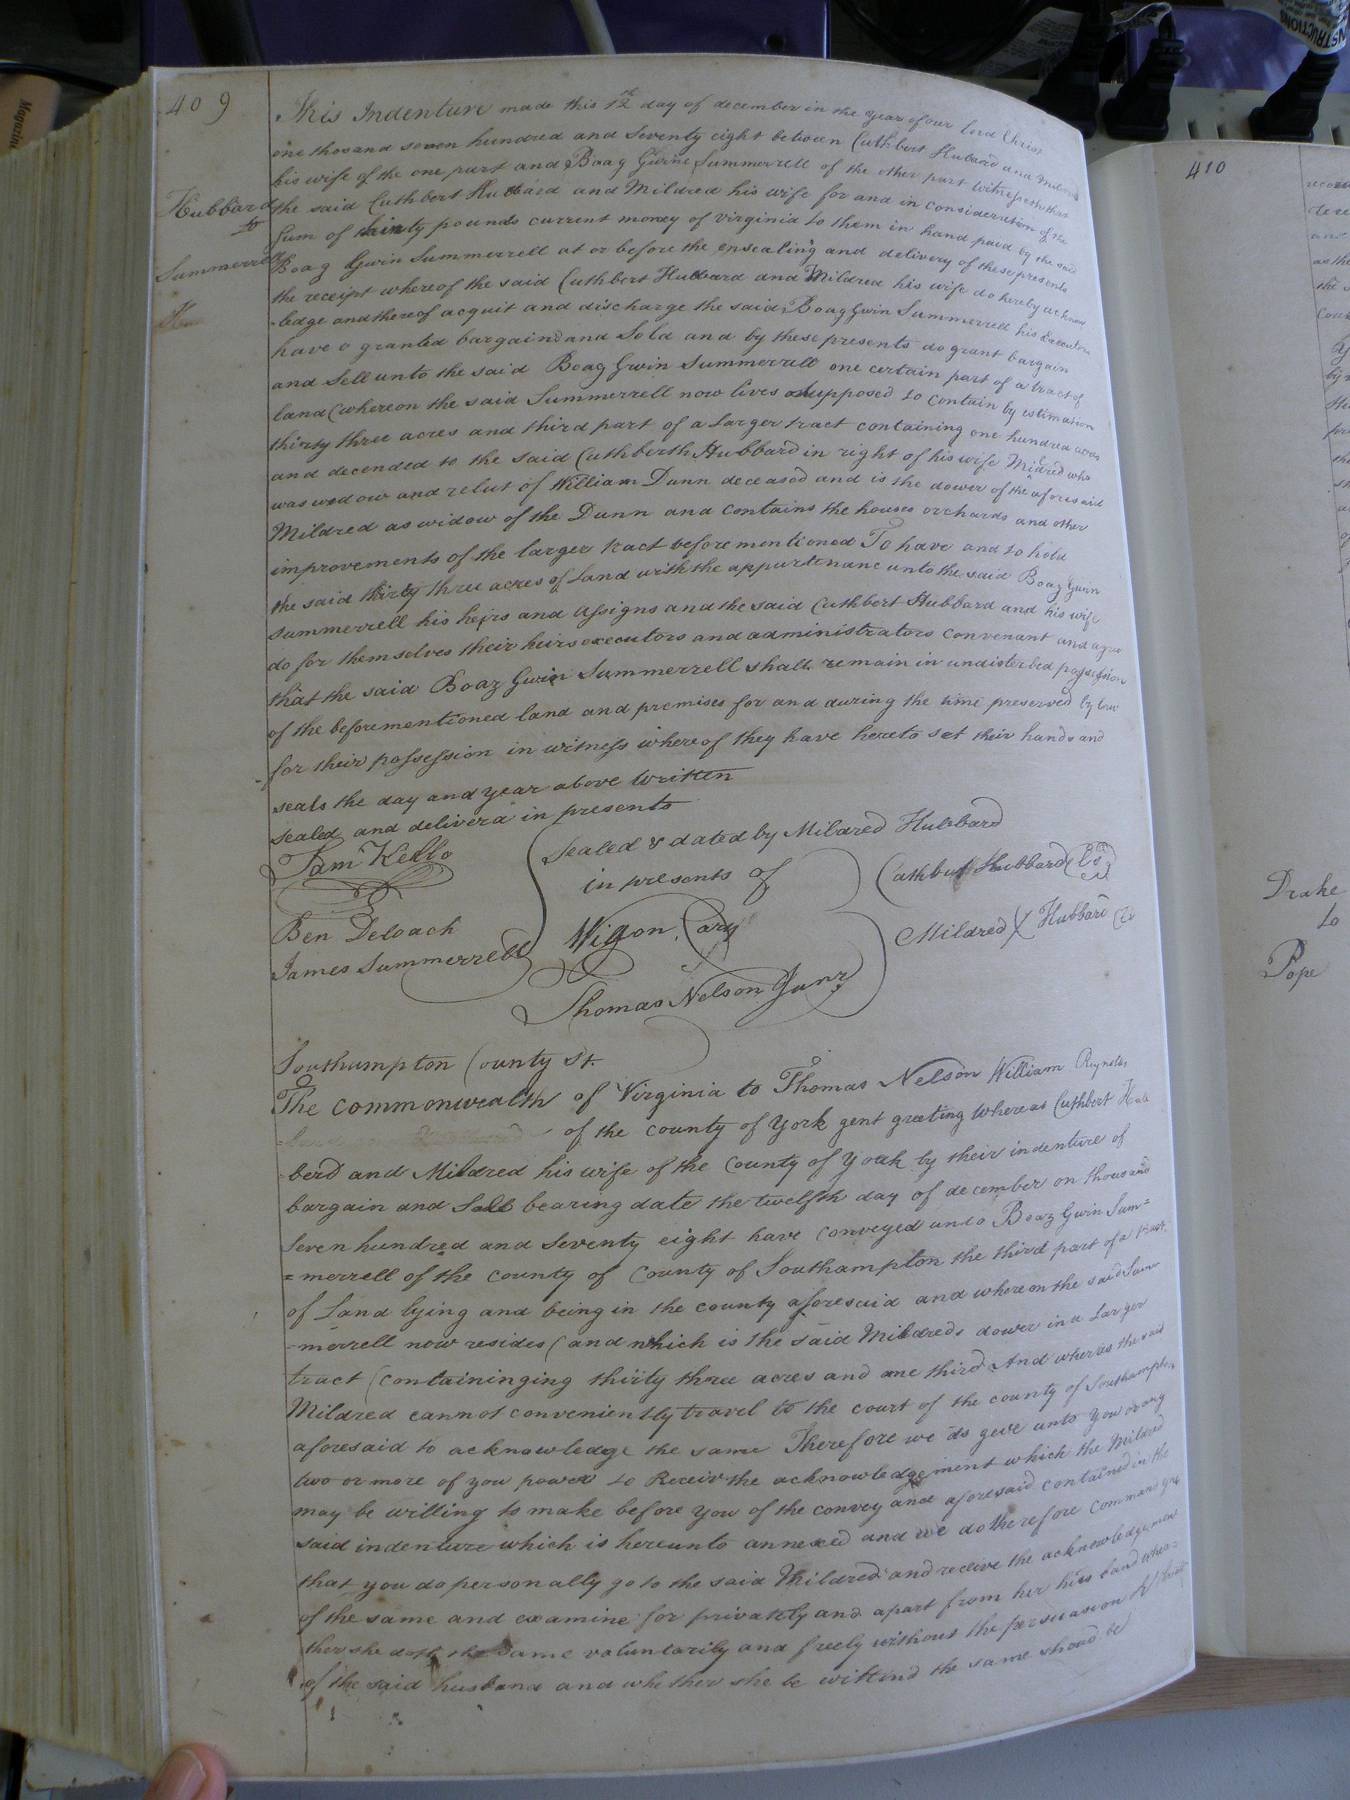 409
This Indenture made this 12th day of december in the year of our lord Christ
one thosand seven hundred and Seventy eight between Cuthbert Hubbard and Mildred
his wife of the one part and Boaz Gwine Summerrell of the other part witnesseth that
Hubbard
to
Summerrell
the said Cuthbert Hubbard and Mildred his wife for and in consideration of the
Sum of thirty pounds current money of virginia to them in hand paid by the said
Boaz Gwin Summerrell at or before the ensealing and delivery of these presents
the receipt whereof the said Cuthbert Hubbard and Mildred his wife do hereby acknow
-ledge and thereof acquit and discharge the said Boaz Gwin Summerrell his Executors
have o granted bargaind and Sold and by these presents do grant bargain
and Sell unto the said Boaz Gwin Summerrell one certain part of a tract of
land (whereon the said Summerrell now lives supposed to contain by estimation
thirty three acres and third part of a larger tract containing one hundred acres
and decended to the said Cuthberth Hubbard in right of his wife Mildred who
was wedow and relut of William Dunn deceased and is the dower of the aforesaid
Mildred as widow of the Dunn and contains the houses orchards and other
improvements of the larger tract before mentioned To have and to hold
the said thirty three acres of Land with the appurtenanc unto the said Boaz Gwin
Summerrell his heirs and assigns and the said Cuthbert Hubbard and his wife
do for themselves their heirs executors and administrators convenant and agree
that the said Boaz Gwin Summerrell shall remain in undisterbed possession
of the beforementioned land and premises for and during the time preserved by law
for their possession in witness whereof they have hereto set their hands and
seals the day and year above written
sealed and deliverd in presents
Sam Kello
Ben Deloach
James Summerrell
Sealed & dated by Mildred Hubbard
in presents of
Wilson Cary
Thomas Nelson Junr
Cuthbut Hubbard (Ls)
Mildred X Hubbard
Southampton County St.
The commonwealth of Virginia to Thomas Nelson William Reynolds
of the county of York gent greeting Whereas Cuthbert Hub
-berd and Mildred his wife of the County of York by their indenture of
bargain and Sale bearing date the twelfth day of december on thousand
Seven hundred and Seventy eight have conveyed unto Boaz Gwin Sum=
=merrell of the county of County of Southampton the third part of a tract
of Land lying and being in the county aforesaid and whereon the said Sum
-merrell now resides (and which is the said Mildreds dower in a Larger
tract (containinging thirty three acres and one third And wheras the said
Mildred cannot conveniently travel to the court of the county of Southampton
aforesaid to acknowledge the same Therefore we do geve unto you or any
two or more of you power to Receiv the acknowledgement which the Mildred
may be willing to make before you of the convey and aforesaid contained in the
said indenture which is hereunto annexed and we do therefore command you
that you do personally go to the said Mildred and receive the acknowledgement
of the same and examine for privately and apart from her husband whea=
ther she doth the same voluntarily and freely without the persuasion
of the said husband and whether she be willind the same shoud be
410
Drake
to
Pope
INSTRUCTIONS
Magazine